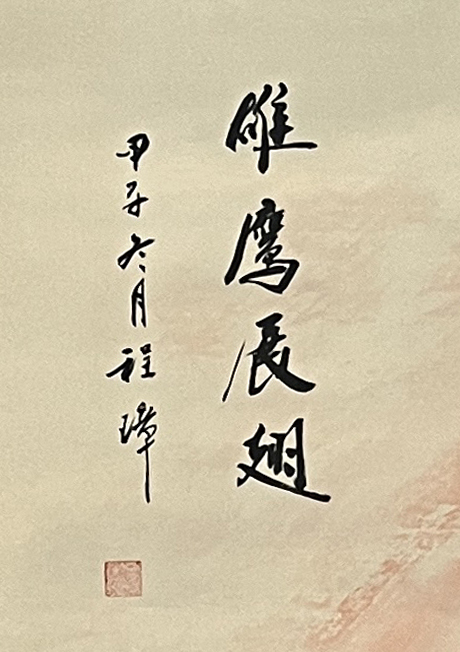 雄鹰展翅
甲子冬月程璋